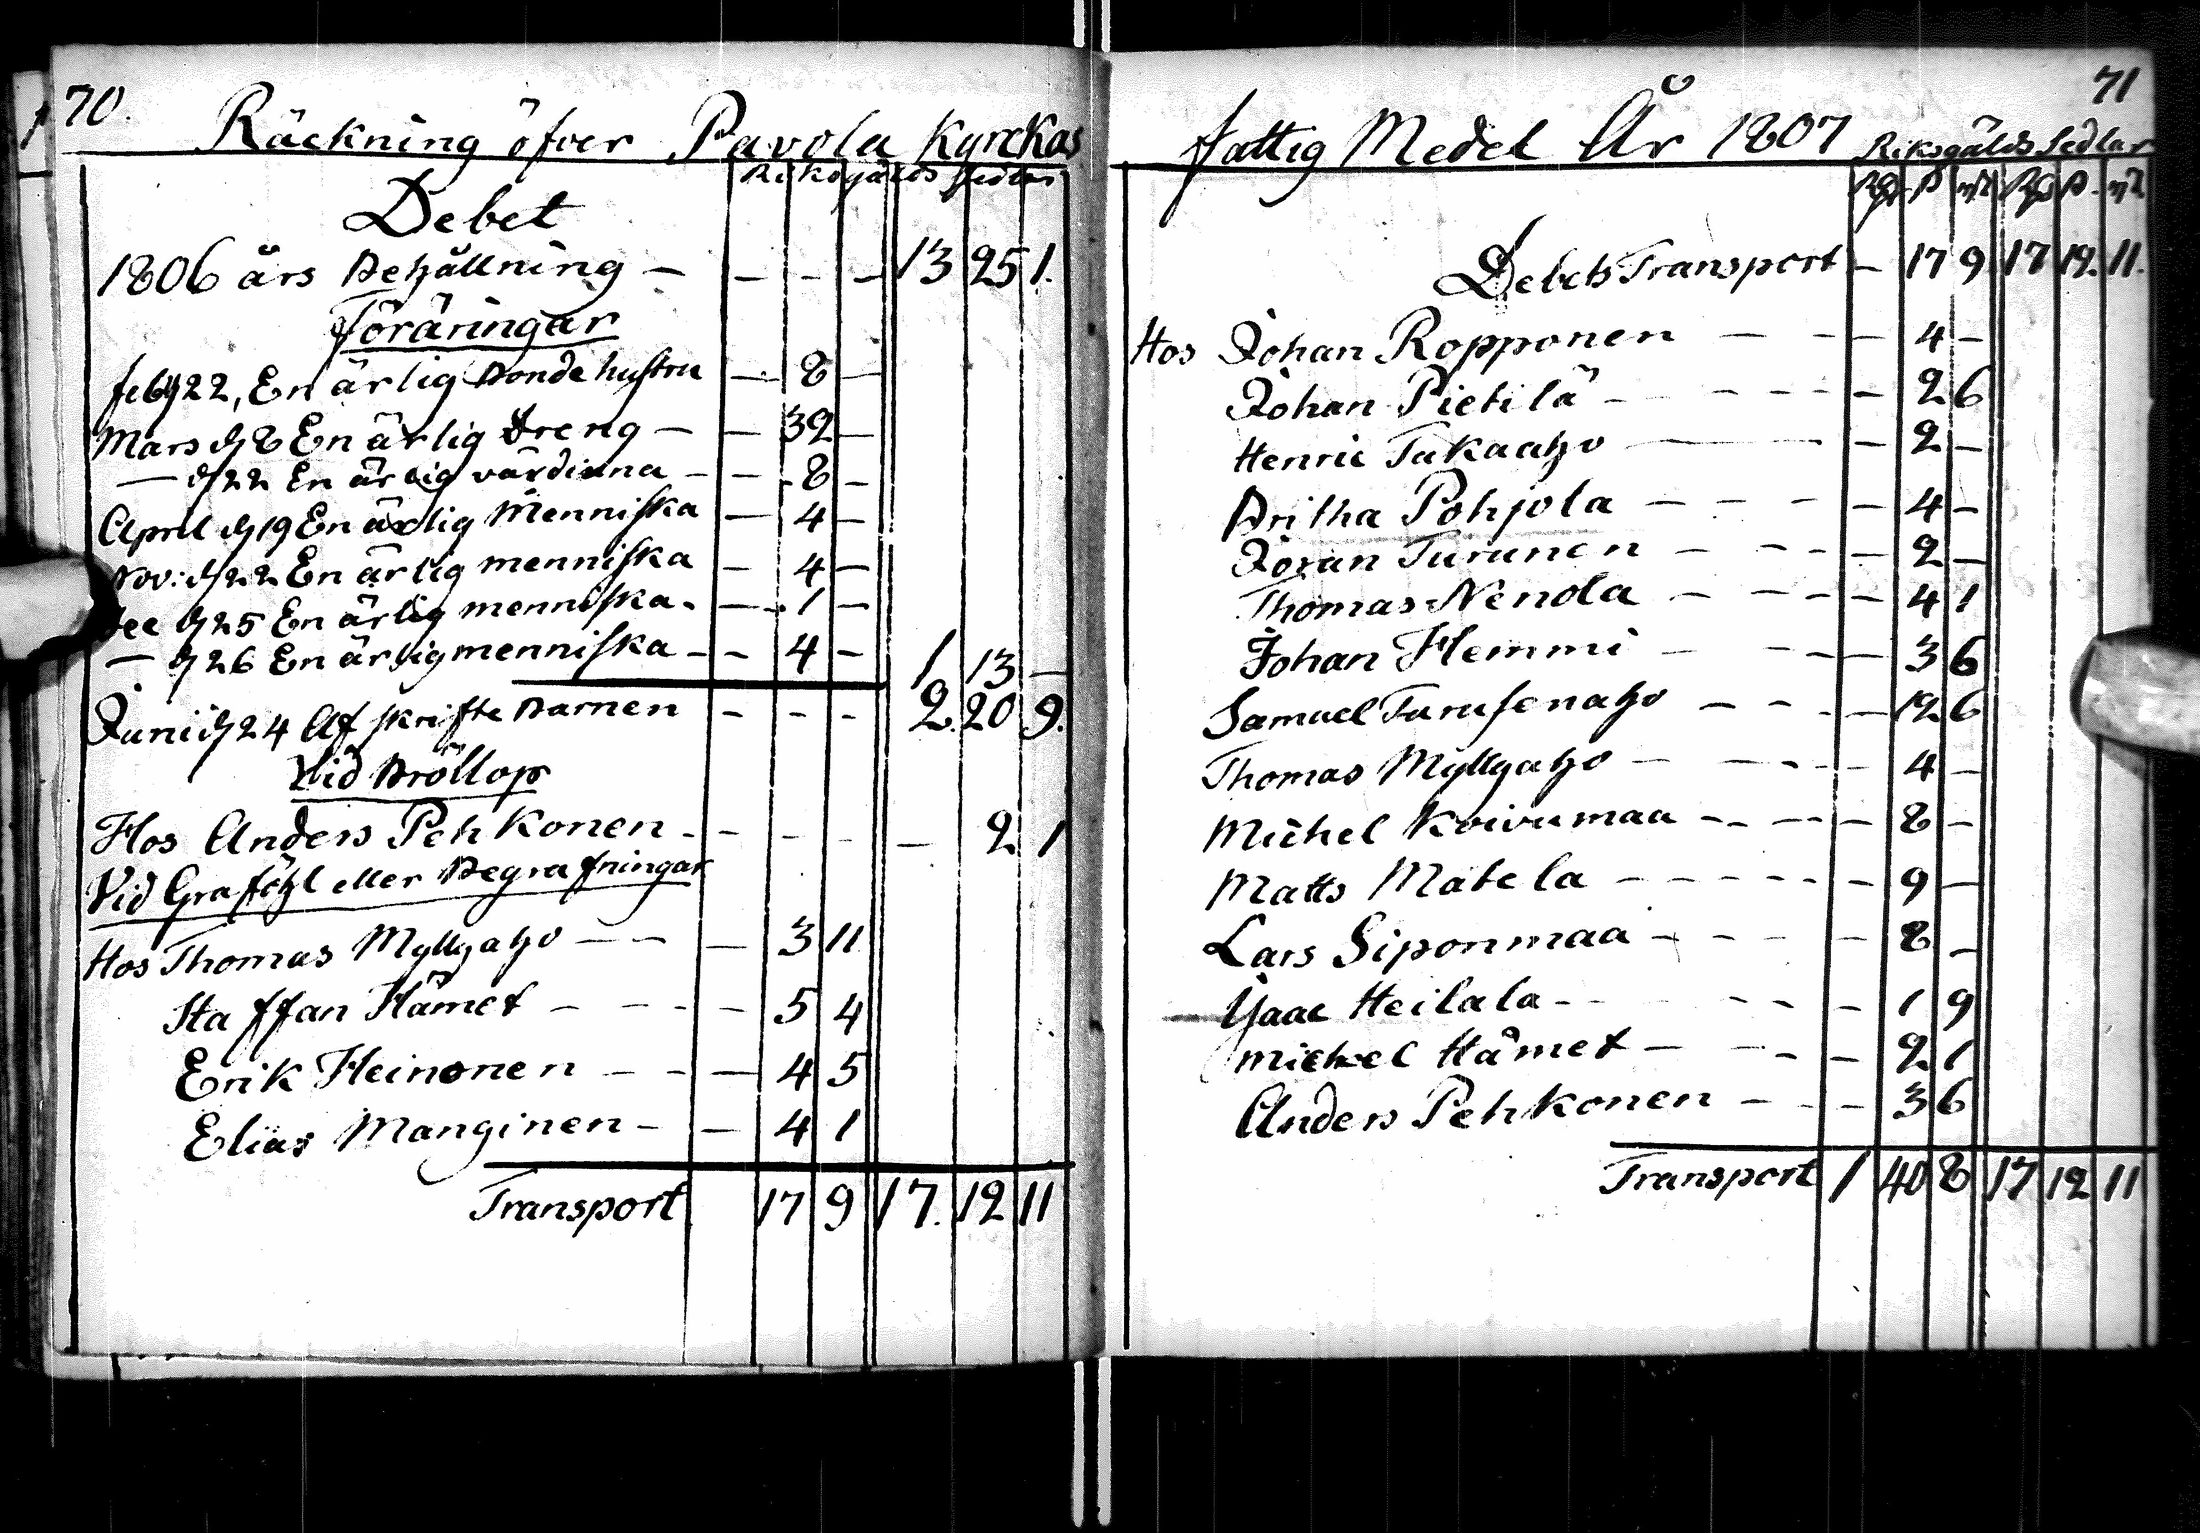 70.
Räckning öfver Pavola Kyrckas
Riksgälds Sedlar
Debet
1806 års Behållning — - - - 13 25 1.
Föräringar
feb dy 22, En ärlig Bonde hustru — 8 —
Mars dy 8 En ärlig dreng — — 32 —
— dy 22 En ärlig värdinna - - - 8 -
April dy 19 En ärlig Menniska — 4 —
Nov: dy 22 En ärlig menniska — 4 —
Dec dy 25 En ärlig menniska. — 1 —
— dy 26 En ärlig menniska - - 4 - 1 13 —
Junii dy 24 Af skrifte Barnen - - - 2. 20 9.
Vid Bröllop
Hos Anders Pehkonen - - - - — 2 1
Vid Graföhl eller Begrafningar
Hos Thomas Myllyaho — — — 3 11
Staffan Hämet — - - - 5 4
Erik Heinonen — - — 4 5
Elias Manginen - — 4 1
Transport 17 9 17. 12 11
71
fattig Medel År 1807 Riksgälds Sedlar
Rdr ß rst Rdr ß rst
Debets Transport — 17 9 17 12. 11.
Hos Johan Ropponen — - - 4 -
Johan Pietilä - - - - — 2 6
Henric Takaaho — - 2 -
Britha Pohjola — - - — 4 -
Göran Turunen — - - - 2 —
Thomas Nenola — - - - 4 1
Johan Hemmi — - - — 3 6
Samuel Turusenaho — - - — 12 6
Thomas Myllyaho — - - - 4 —
Michel Koivumaa - - - - — 8 -
Matts Matela - - - - - — 9 —
Lars Siponmaa - - - - — 8. -
Isaac Heilala - - - - - 1 9
Michel Hämet — - - — 2 1
Anders Pehkonen — - - 3 6
Transport 1 40 8 17 12 11